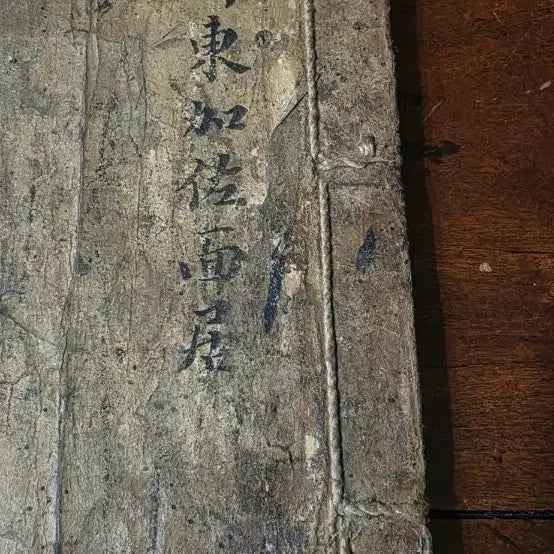 東加佐面居